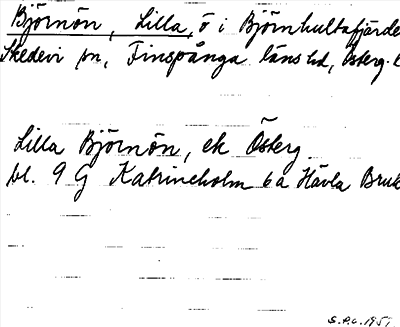 Björnön, Lilla, ö i Björnhultafjärde
Skedevi sn, Finspånga läns hd, Österg. l
Lilla Björnön, ek Österg
bl. 9 G Katrineholm 6 a Hävla Bruk
S.P.C. 1957